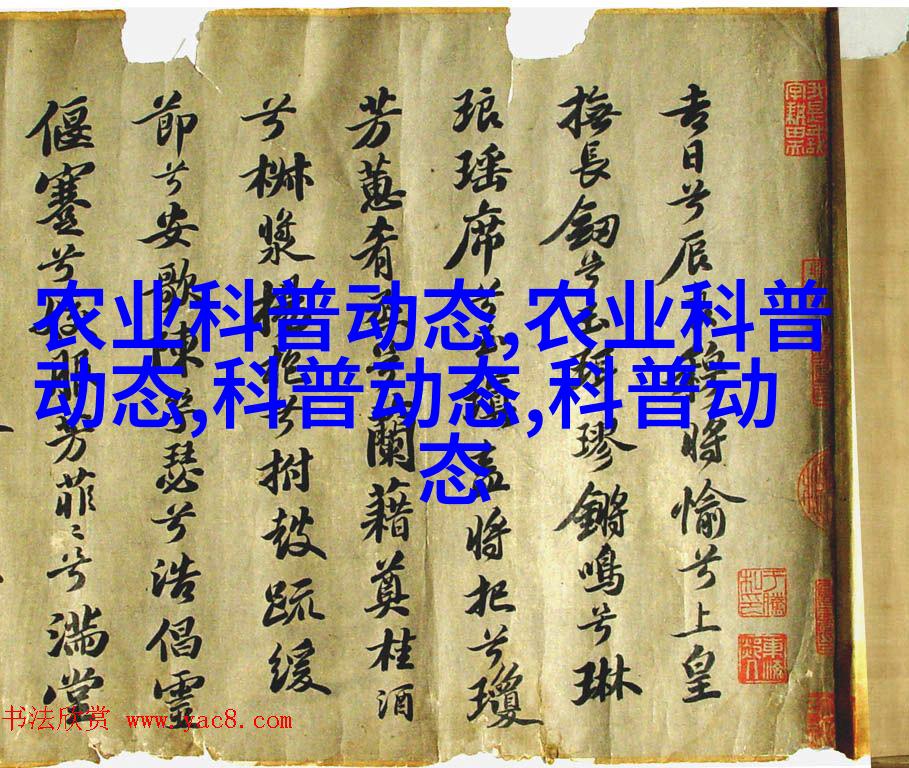 农业科普动态,农业科普
动态,科普动态,科普动
态
吉日兮辰良穆將愉兮上皇
撫長劒兮玉珥璆鏘鳴兮琳
琅瑶席兮玉瑱盍將把兮瓊
芳蕙肴兮蘭藉奠桂酒
兮椒漿揚枹兮拊鼓疏緩
節兮安歌陳竽瑟兮浩倡靈
偃蹇兮服芳菲〻兮滿堂
书法欣赏 www.yac8.com